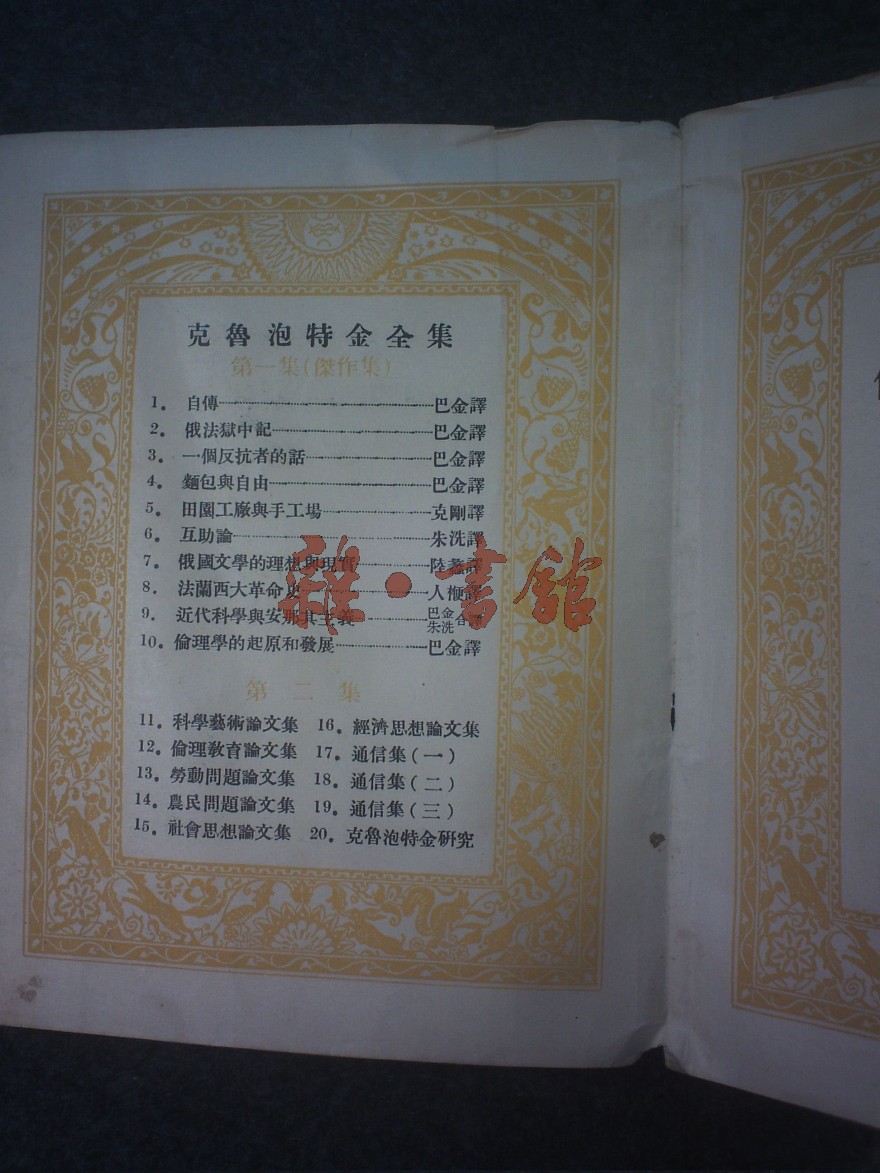 克魯泡特金全集
第一集(傑作集)
1. 自傳 巴金譯
2. 俄法獄中記 巴金譯
3. 一個反抗者的話 巴金譯
4. 麵包與自由 巴金譯
5. 田園工廠與手工場 克剛譯
6. 互助論 朱洗譯
7. 俄國文學的理想與現實 陸蠡譯
8. 法蘭西大革命史 人楩譯
9. 近代科學與安那其主義 巴金 朱洗 合譯
10. 倫理學的起原和發展 巴金譯
第二集
11. 科學藝術論文集 16. 經濟思想論文集
12. 倫理教育論文集 17. 通信集(一)
13. 勞動問題論文集 18. 通信集(二)
14. 農民問題論文集 19. 通信集(三)
15. 社會思想論文集 20. 克魯泡特金研究
雜·書館